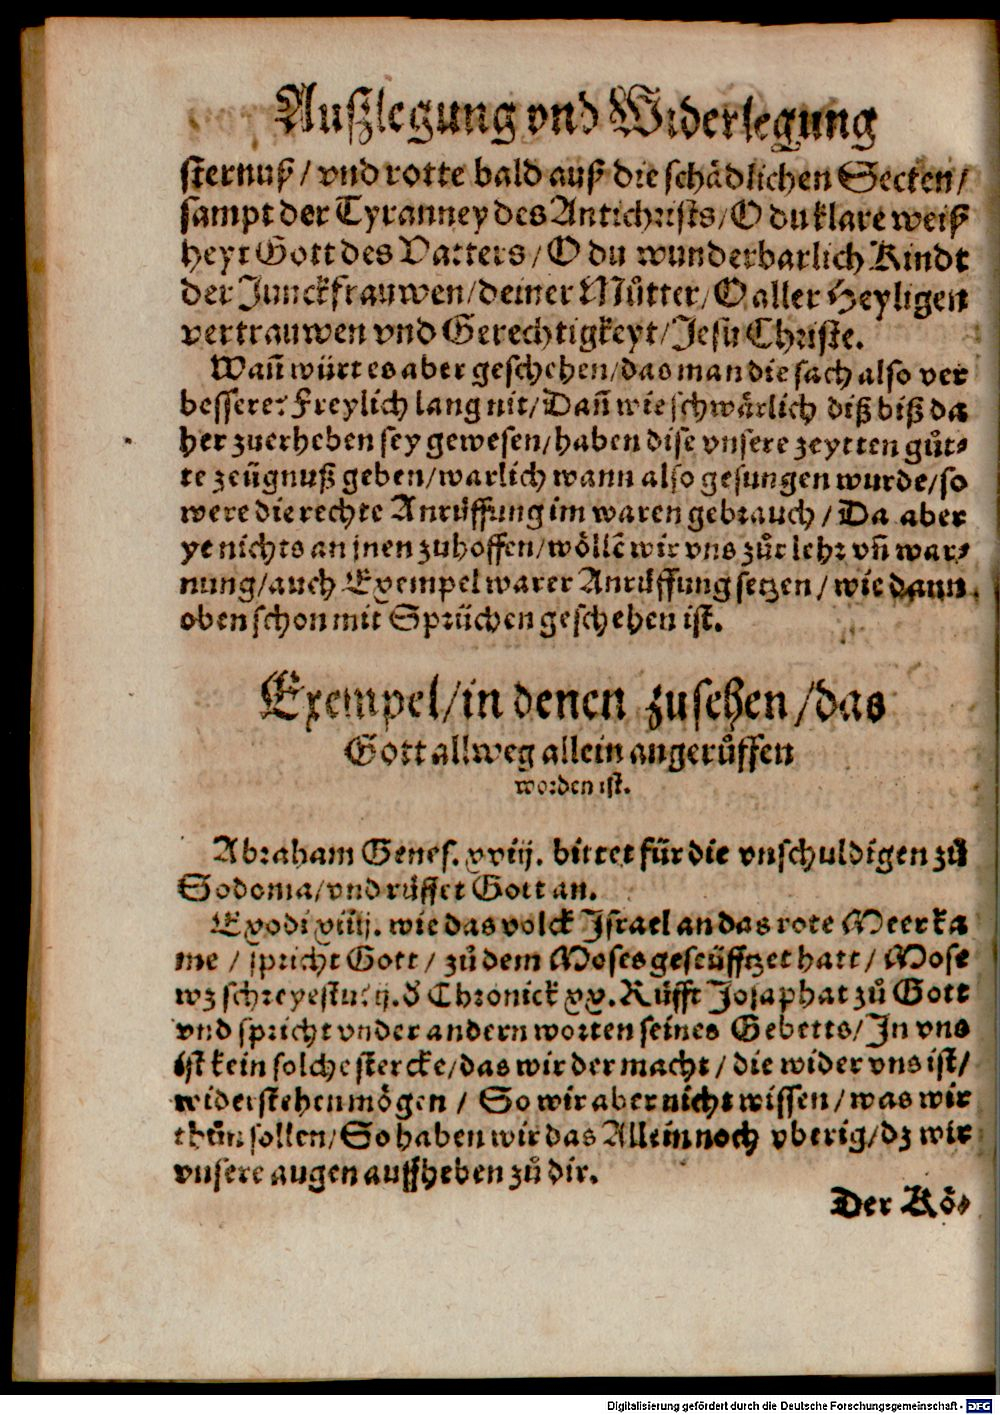 Außlegung vnd Widerlegung
sternuß / vnd rotte bald auß die schädlichen Secten /
sampt der Tyranney des Antichrists / O du klare weiß
heyt Gott des Vatters / O du wunderbarlich Kindt
der Junckfrauwen / deiner Můtter / O aller Heyligen
vertrauwen vnd Gerechtigkeyt / Jesu Christe.
Wañ würt es aber geschehen / das man die sach also ver
bessere? Freylich lang nit / Dañ wie schwärlich diß biß da
her zuerheben sey gewesen / haben dise vnsere zeytten gůt⸗
te zeügnuß geben / warlich wann also gesungen wurde / so
were die rechte Anrüffung im waren gebrauch / Da aber
ye nichts an jnen zuhoffen / wöllē wir vns zůr lehr vñ war⸗
nung / auch Exempel warer Anrüffung setzen / wie dann
oben schon mit Sprüchen geschehen ist.
Exempel / in denen zusehen / das
Gott allweg allein angerůffen
worden ist.
Abraham Genes. xviij. bittet für die vnschuldigen zů
Sodoma / vnd rüffet Gott an.
Exodi xiiij. wie das volck Israel an das rote Meer ka
me / spricht Gott / zů dem Moses geseüfftzet hatt / Mose
wz schreyestu? ij. d' Chronick xx. Rüfft Josaphat zů Gott
vnd spricht vnder andern worten seines Gebetts / In vns
ist kein solche stercke / das wir der macht / die wider vns ist /
widerstehen mögen / So wir aber nicht wissen / was wir
thůn sollen / So haben wir das Allein noch vberig / dz wir
vnsere augen auffheben zů dir.
Der Kö⸗
Digitalisierung gefördert durch die Deutsche Forschungsgemeinschaft - DFG